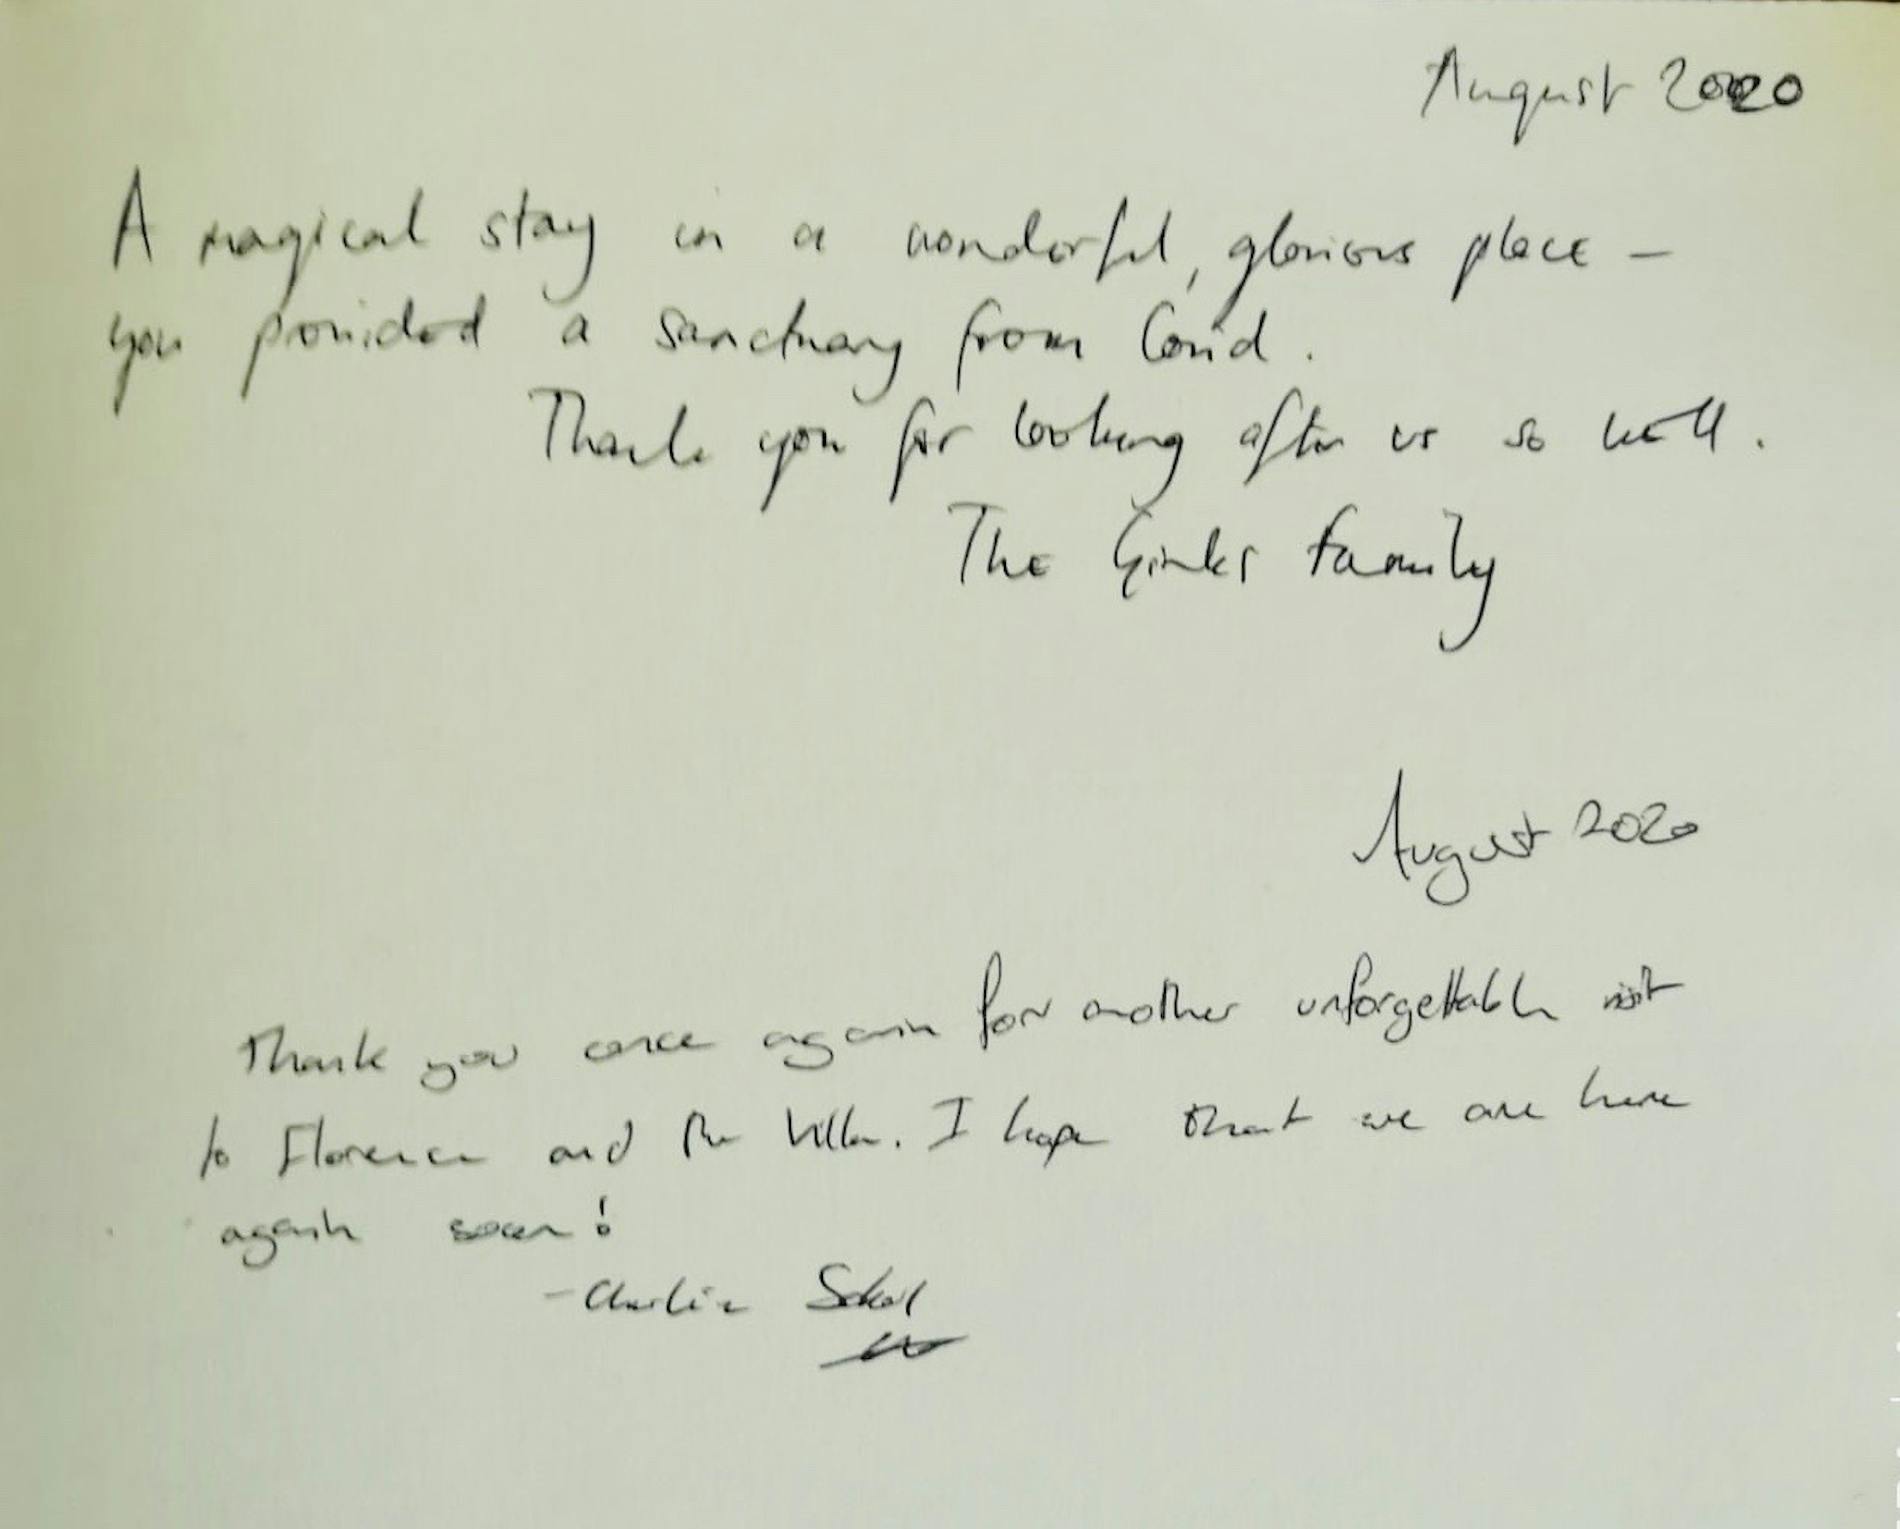 August 2020
A magical stay in a wonderful, glorious place –
you provided a sanctuary from Covid.
Thank you for looking after us so well.
The Family
August 2020
Thank you once again for another unforgettable visit
to Florence and the Villa. I hope that we are here
again soon!
- Charlie